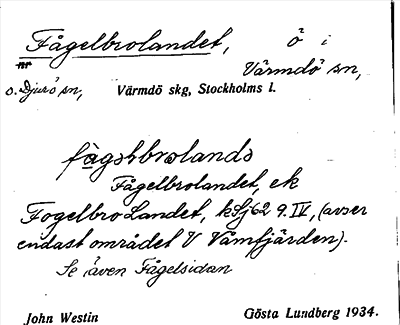 Fågelbrolandet, ö i
nr Värmdö sn,
o. Djurö sn, Värmdö skg, Stockholms l.
fågəlbrolandə
Fågelbrolandet, ek
Fogelbro Landet, kSj62 9. IV, (avser
endast området V Vämfjärden).
Se även Fågelsidan
John Westin Gösta Lundberg 1934.